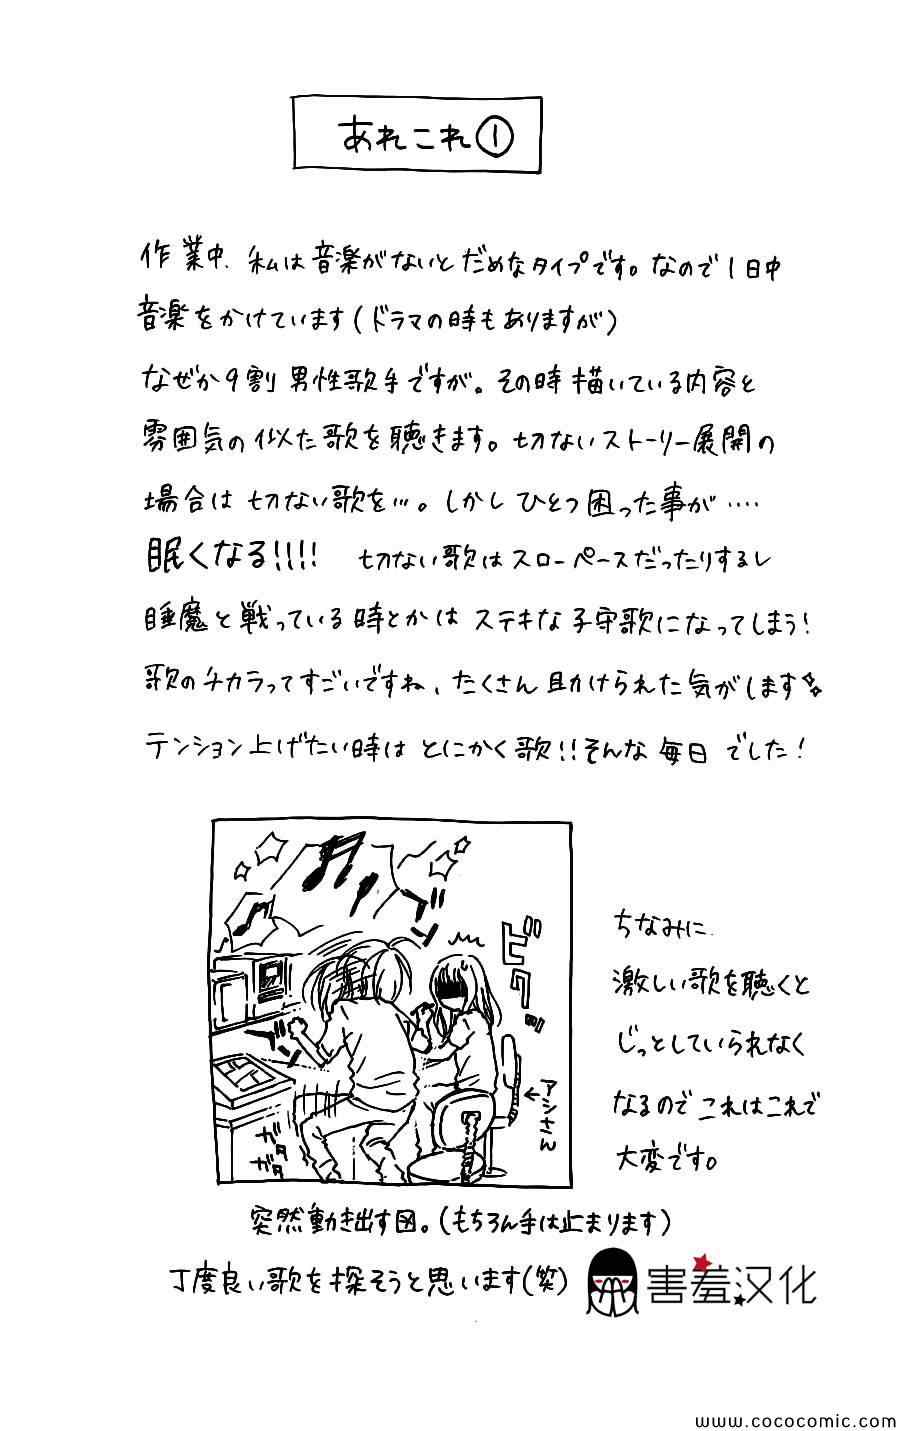 あれこれ①
作業中、私は音楽がないとだめなタイプです。なので1日中
音楽をかけています(ドラマの時もありますが)
なぜか9割男性歌手ですが。その時描いている内容と
雰囲気の似た歌を聴きます。切ないストーリー展開の
場合は切ない歌を…。しかしひとつ困った事が‥‥
眠くなる!!!! 切ない歌はスローペースだったりするし
睡魔と戦っている時とかはステキな子守歌になってしまう!
歌のチカラってすごいですね、たくさん助けられた気がします
テンション上げたい時はとにかく歌!!そんな毎日でした!
ブンッ
ビクッ
ブンッ
ガタ
ガタ
←アシさん
ちなみに、
激しい歌を聴くと
じっとしていられなく
なるのでこれはこれで
大変です。
突然動き出す図。(もちろん手は止まります)
丁度良い歌を探そうと思います(笑)
害羞汉化
www.cococomic.com